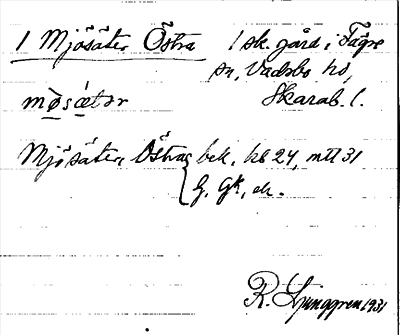 1 Mjösäter Östra 1 sk. gård i Fägre
sn, Vadsbo hd,
Skarab. l.
mø̀sætər
Mjösäter, Östra, bek, kb 24, mtl 31
G. Gk, ek.
R. Ljunggren 1931